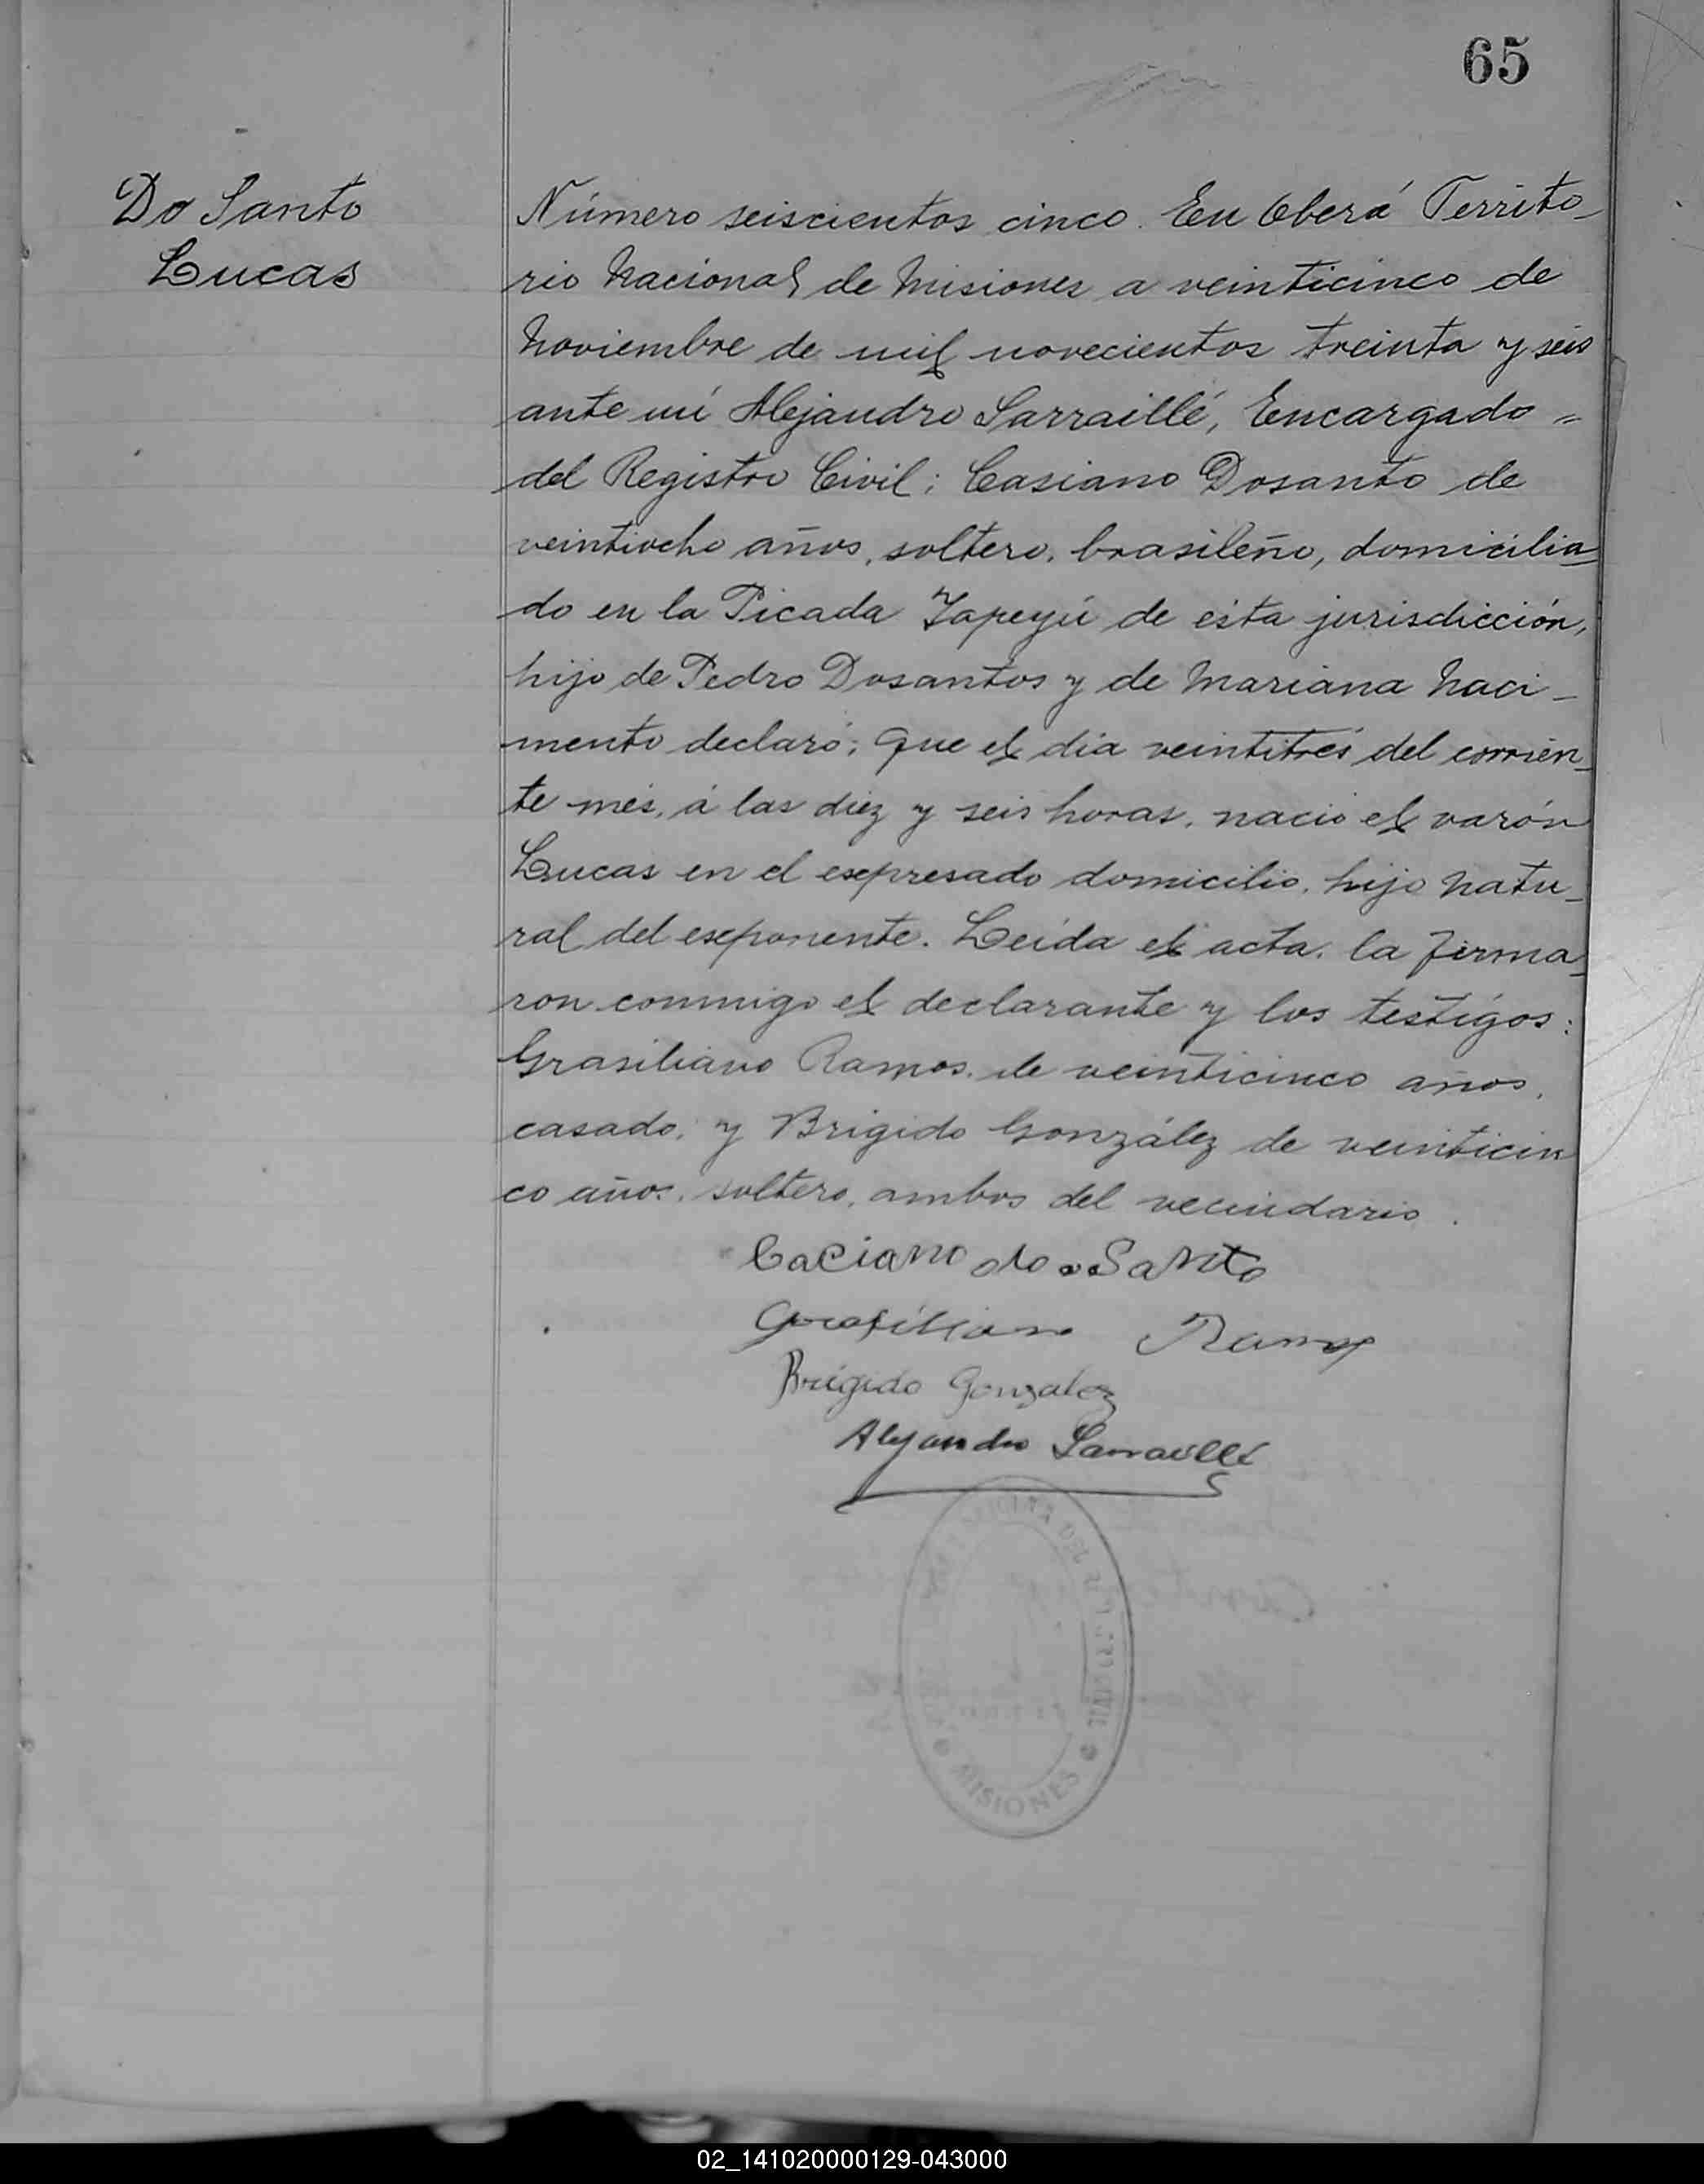 65
Do Santo
Lucas
Número seiscientos cinco. En Oberá Territo-
rio Nacional de Misiones a veinticinco de
Noviembre de mil novecientos treinta y seis
ante mí Alejandro Sarraillé, Encargado =
del Registro Civil; Casiano Dosanto de
veintiocho años, soltero, brasileño, domicilia-
do en la Picada Yapeyú de ésta jurisdicción,
hijo de Pedro Dosantos y de Mariana Naci-
mento declaró; Que el día veintitrés del corrien-
te més, á las diez y seis horas, nació el varón
Lucas en el expresado domicilio, hijo natu-
ral del exponente. Leída el acta, la firma-
ron conmigo el declarante y los testigos:
Grasiliano Ramos, de veinticinco años,
casado, y Brigido González de veinticin
co años, soltero, ambos del vecindario.
Caciano do Santo
Grasiliano Ramos
Brigido Gonzalez
Alejandro Sarraillé
MISIONES
02_141020000129-043000